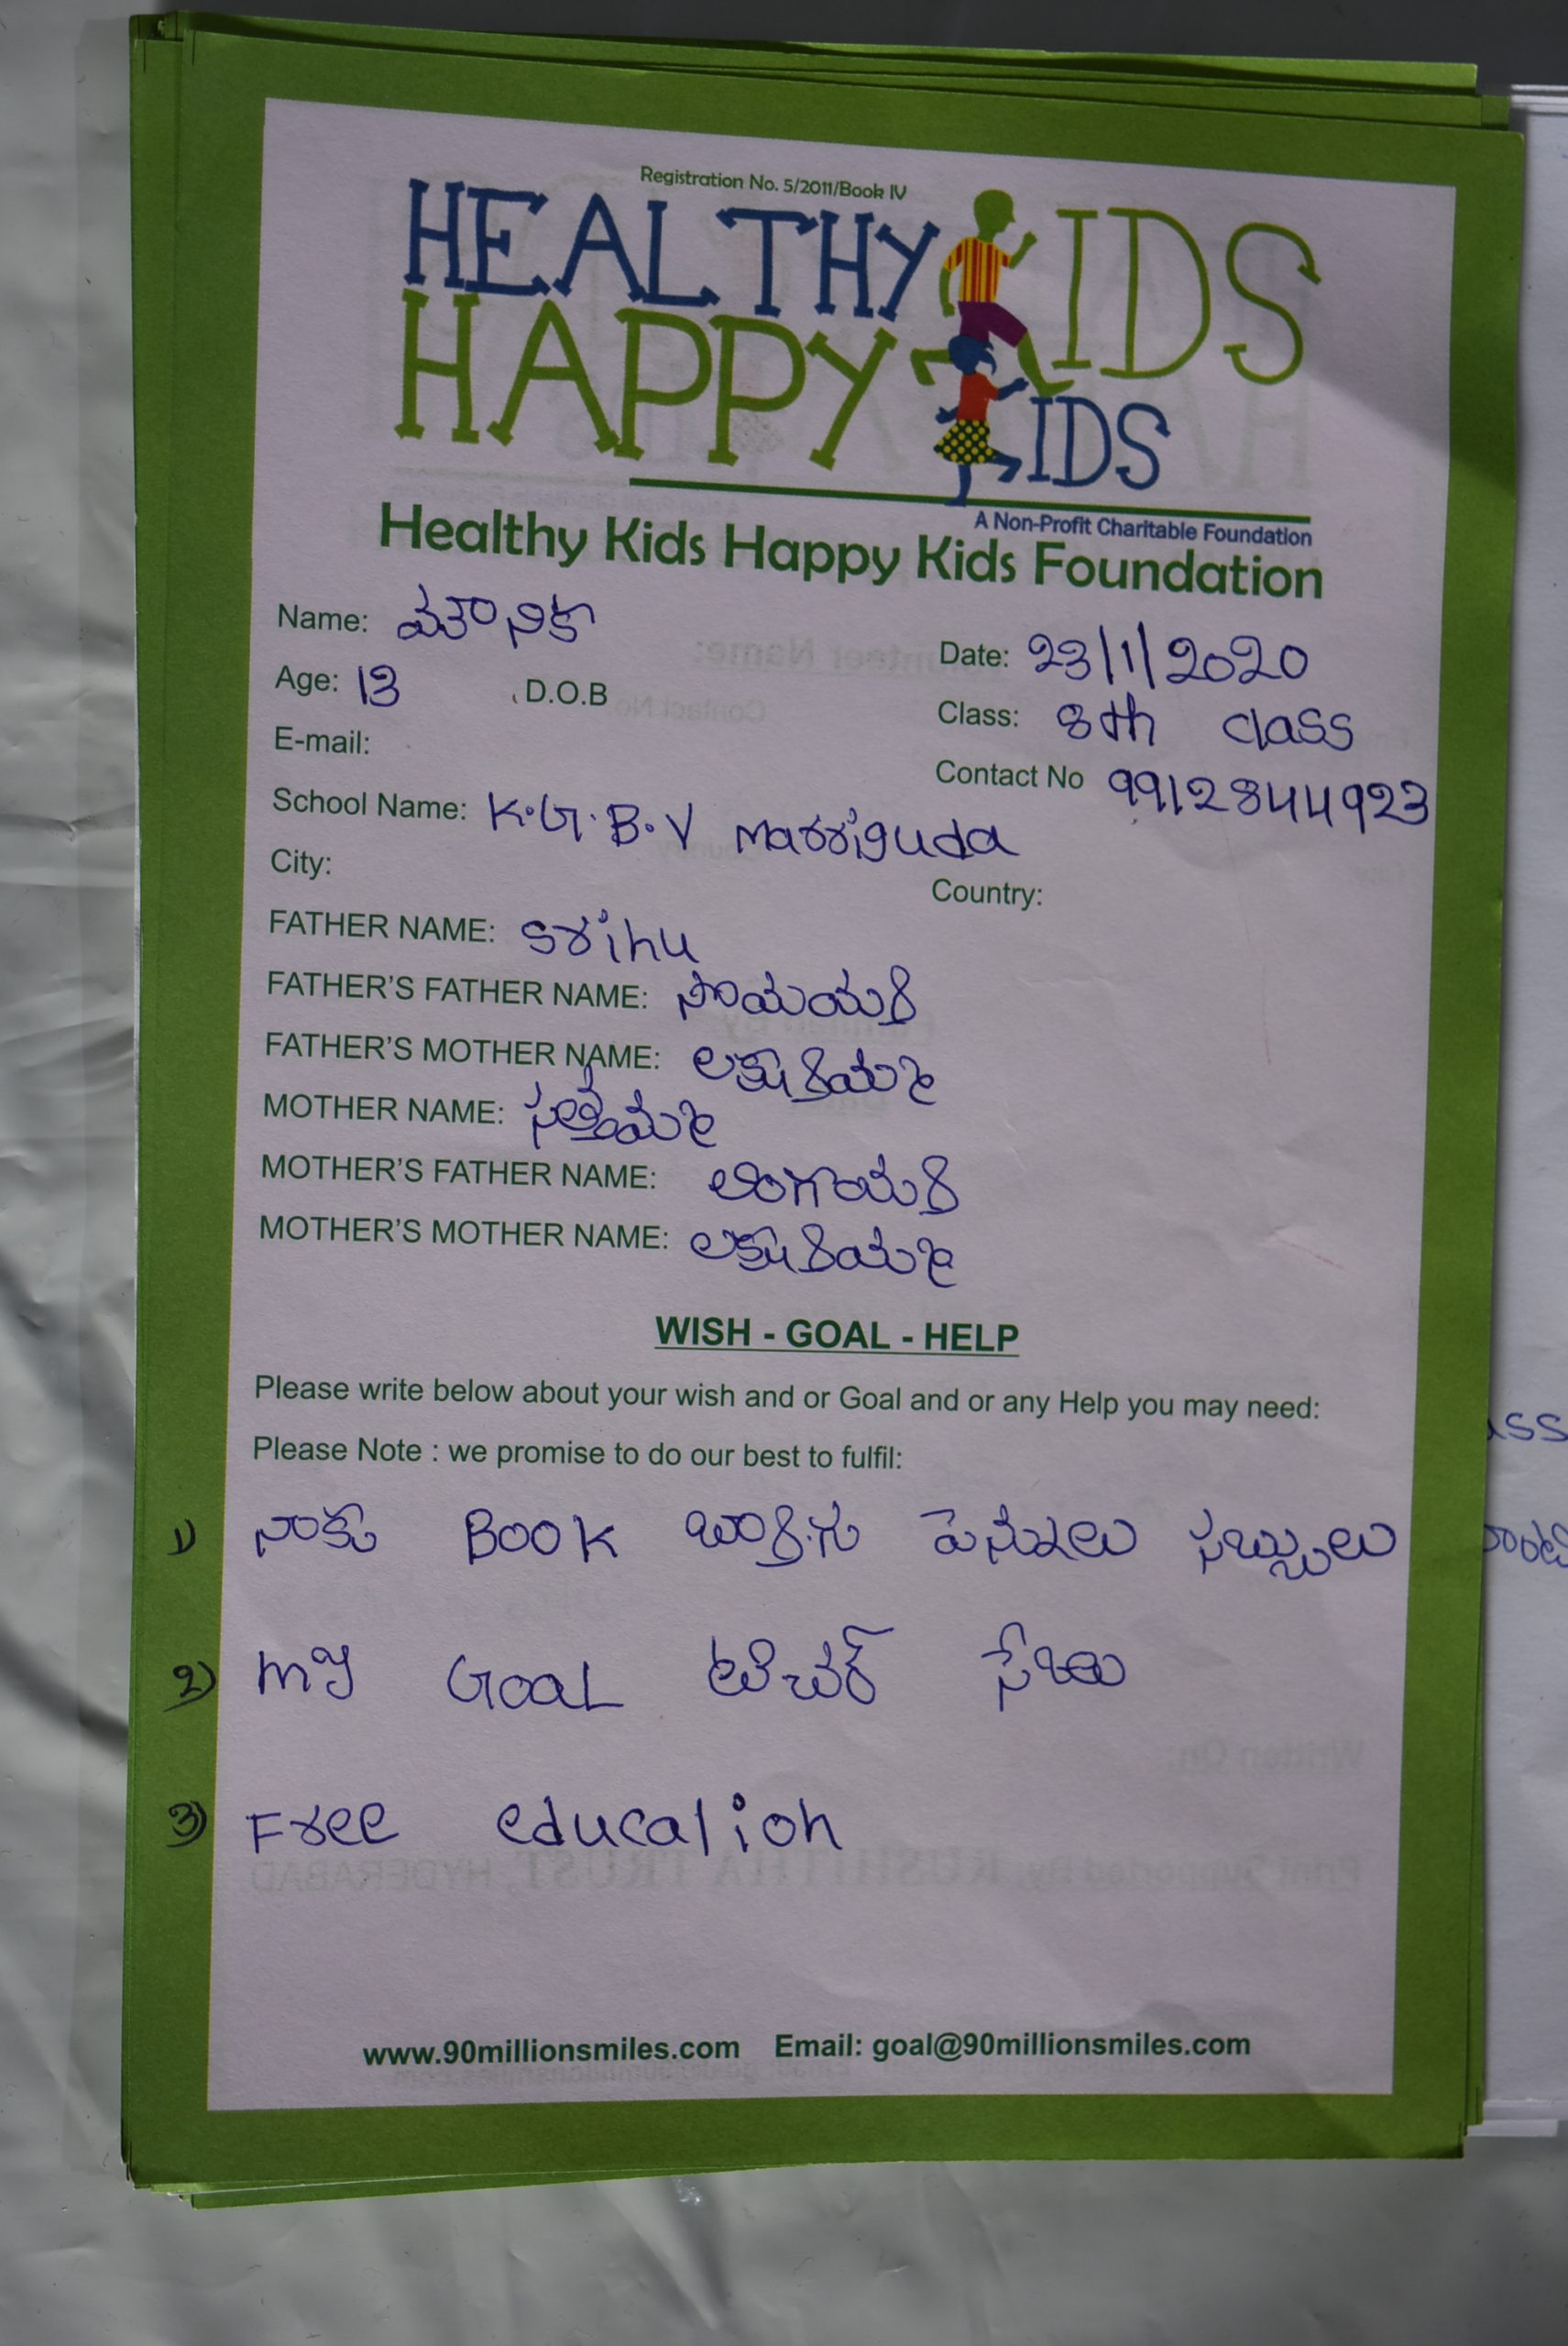 Registration No. 5/2011/Book IV
HEALTHY KIDS
HAPPY KIDS
A Non-Profit Charitable Foundation
Healthy Kids Happy Kids Foundation
Name: మౌనికా
Date: 23/1/2020
Age: 13 D.O.B
Class: 8th class
E-mail:
Contact No 9912844923
School Name: K.G.B.V Marriguda
City:
Country:
FATHER NAME: Srihu
FATHER'S FATHER NAME:
FATHER'S MOTHER NAME:
MOTHER NAME:
MOTHER'S FATHER NAME:
MOTHER'S MOTHER NAME:
WISH - GOAL - HELP
Please write below about your wish and or Goal and or any Help you may need:
Please Note : we promise to do our best to fulfil:
1) నాకు BOOK పెన్నులు సబ్బులు
2) my GOAL టిచర్
3) Free education
www.90millionsmiles.com Email: goal@90millionsmiles.com